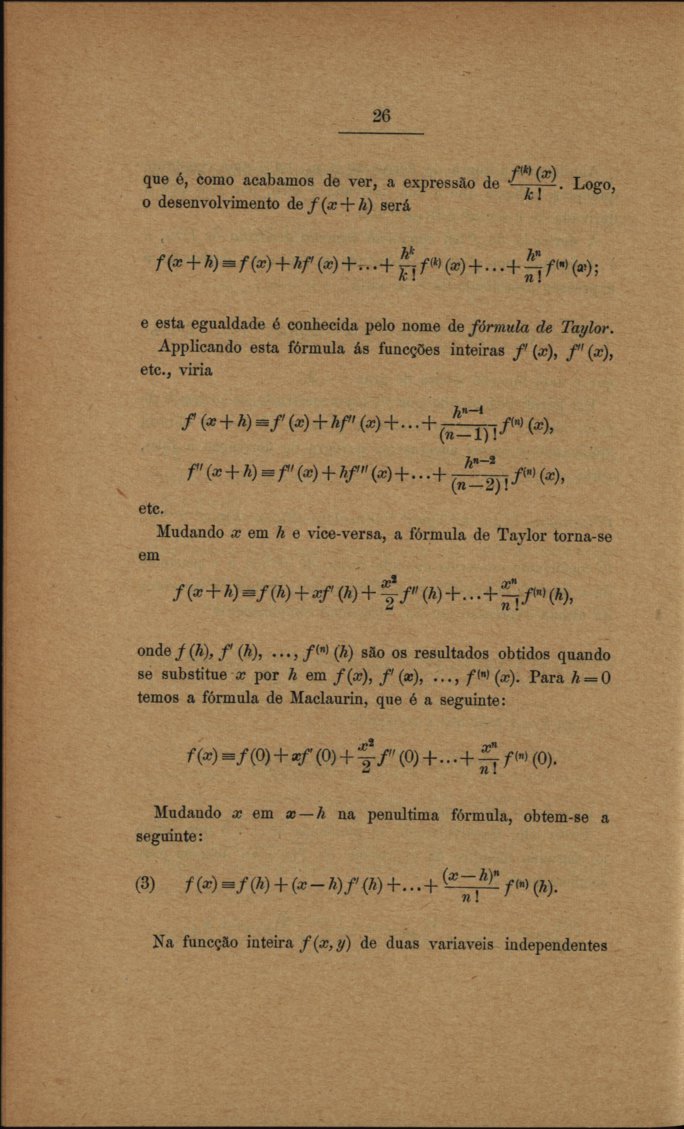 26
que é, como acabamos de ver, a expressão de f⁽ᵏ⁾ (x) / k ! . Logo,
o desenvolvimento de f (x + h) será
f (x + h) ≡ f (x) + hf' (x) + ... + hᵏ / k ! f⁽ᵏ⁾ (x) + ... + hⁿ / n ! f⁽ⁿ⁾ (x);
e esta egualdade é conhecida pelo nome de fórmula de Taylor.
Applicando esta fórmula ás funcções inteiras f' (x), f'' (x),
etc., viria
f' (x + h) ≡ f' (x) + hf'' (x) + ... + hⁿ⁻¹ / (n — 1) ! f⁽ⁿ⁾ (x),
f'' (x + h) ≡ f'' (x) + hf''' (x) + ... + hⁿ⁻² / (n — 2) ! f⁽ⁿ⁾ (x),
etc.
Mudando x em h e vice-versa, a fórmula de Taylor torna-se
em
f (x + h) ≡ f (h) + xf' (h) + x² / 2 f'' (h) + ... + xⁿ / n ! f⁽ⁿ⁾ (h),
onde f (h), f' (h), ..., f⁽ⁿ⁾ (h) são os resultados obtidos quando
se substitue x por h em f (x), f' (x), ..., f⁽ⁿ⁾ (x). Para h = 0
temos a fórmula de Maclaurin, que é a seguinte:
f (x) ≡ f (0) + xf' (0) + x² / 2 f'' (0) + ... + xⁿ / n ! f⁽ⁿ⁾ (0).
Mudando x em x — h na penultima fórmula, obtem-se a
seguinte:
(3) f (x) ≡ f (h) + (x — h) f' (h) + ... + (x — h)ⁿ / n ! f⁽ⁿ⁾ (h).
Na funcção inteira f (x, y) de duas variaveis independentes